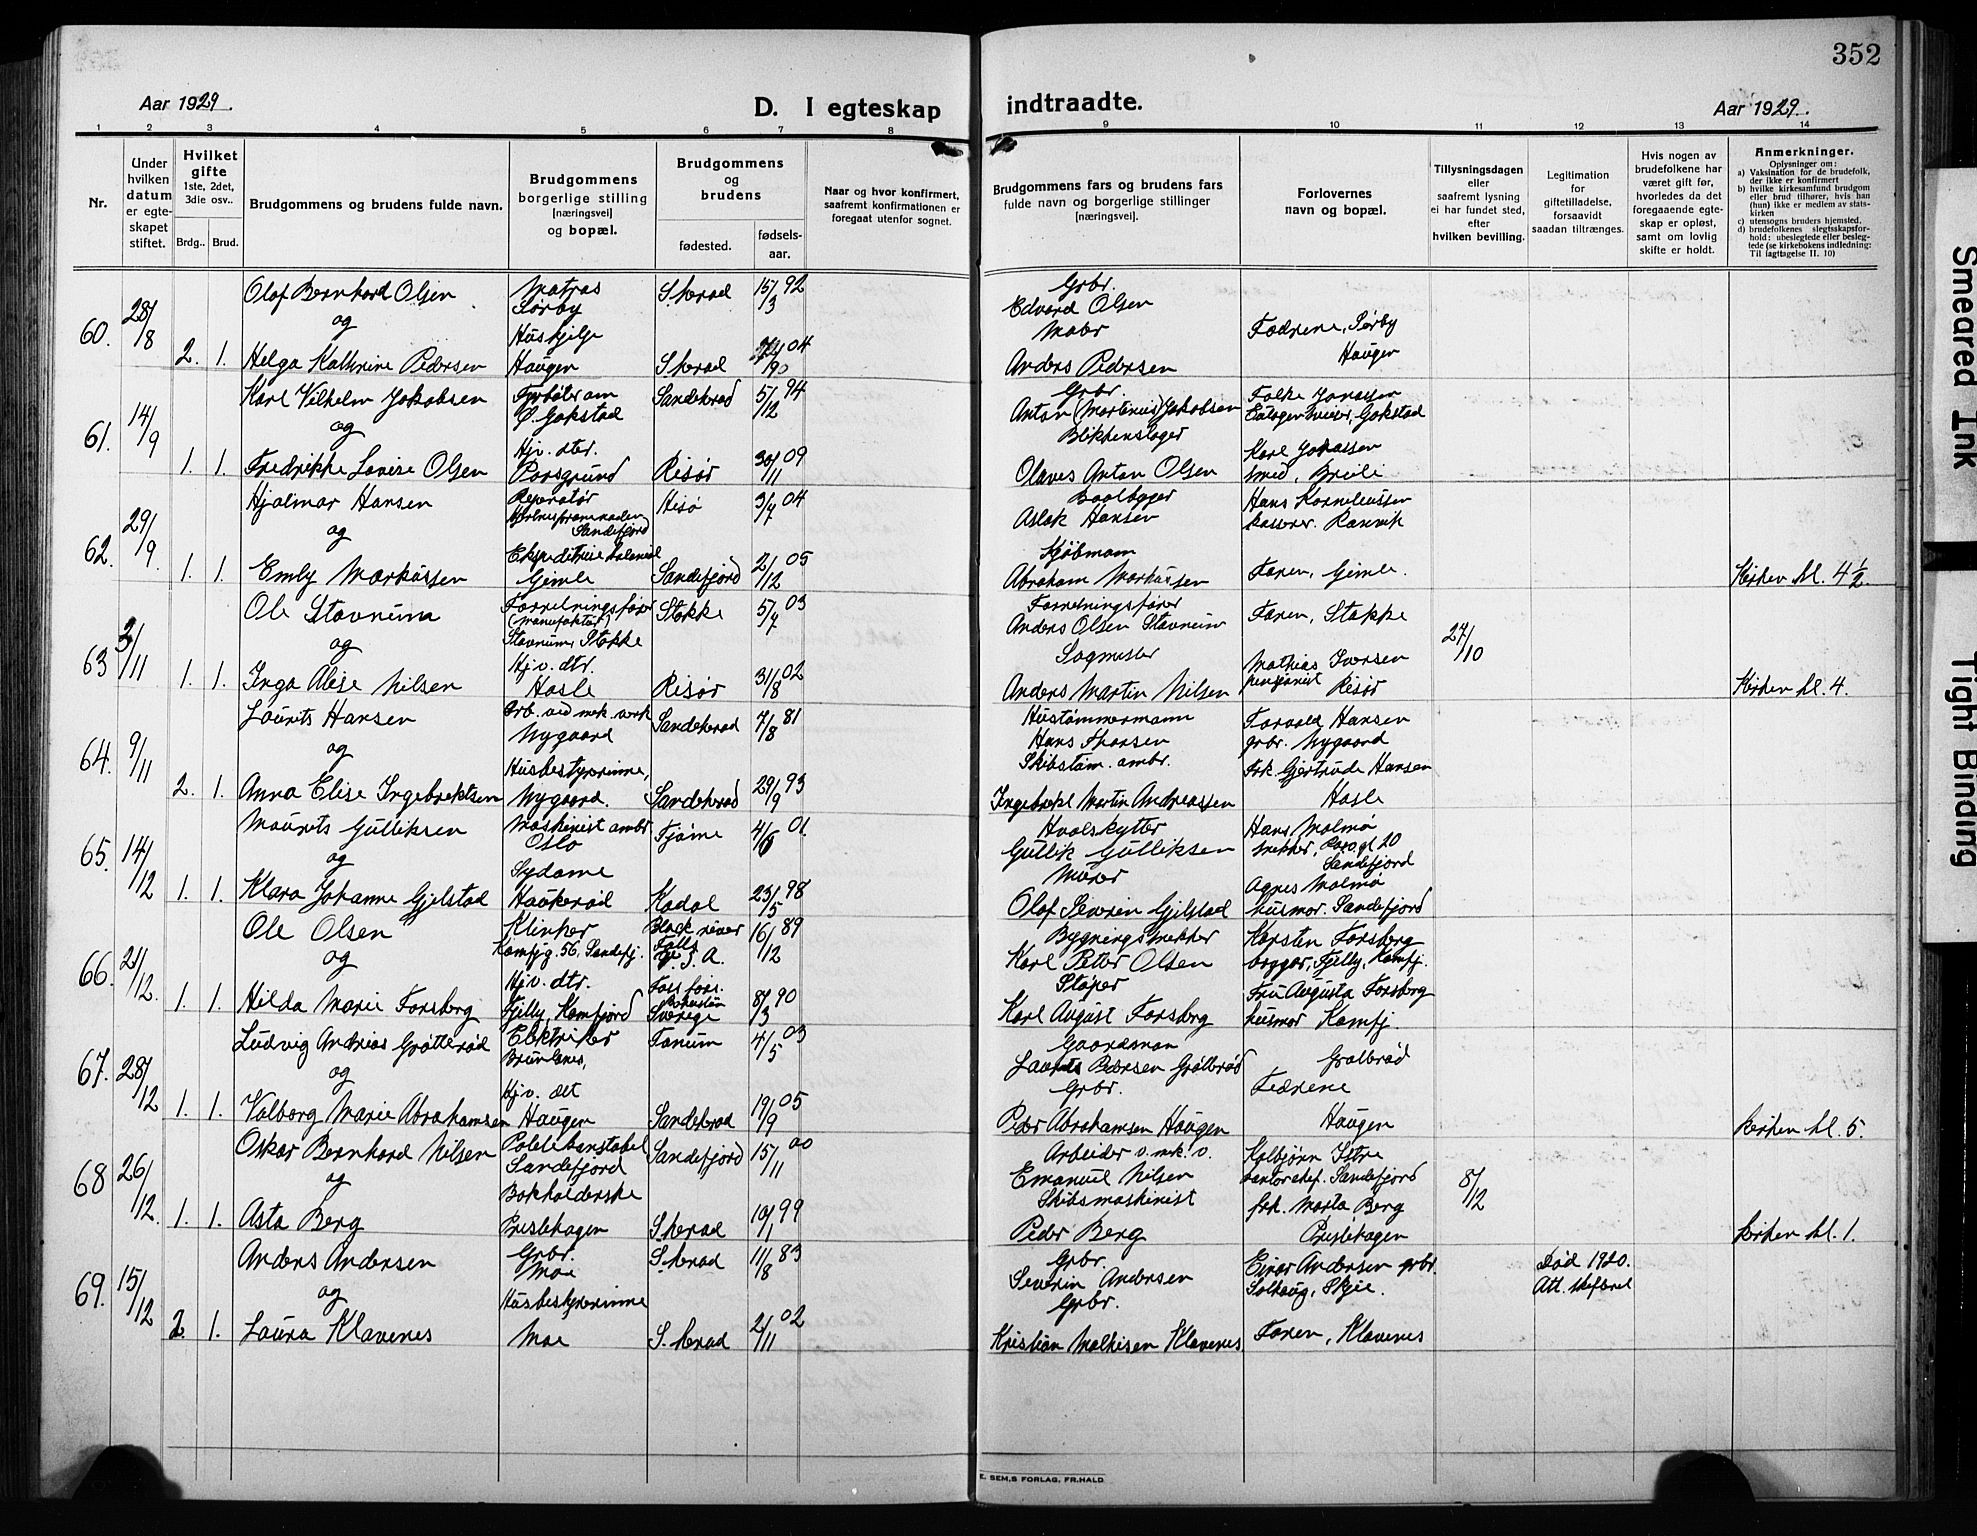 352
Aar 1929.
D. I egteskap
indtraadte.
Aar 1929.
1 2 3 4 5 6 7 8 9 10 11 12 13 14
Nr.
Under hvilken datum er egteskapet stiftet.
Hvilket gifte
1ste, 2det, 3die osv..
Brdg.. Brud.
Brudgommens og brudens fulde navn.
Brudgommens borgerlige stilling [næringsvei] og bopæl.
Brudgommens og brudens
fødested.
fødsels-aar.
Naar og hvor konfirmert, saafremt konfirmationen er foregaat utenfor sognet.
Brudgommens fars og brudens fars fulde navn og borgerlige stillinger [næringsvei].
Forlovernes navn og bopæl.
Tillysningsdagen eller saafremt lysning ei har fundet sted, efter hvilken bevilling.
Legitimation for giftetilladelse, forsaavidt saadan tiltrænges.
Hvis nogen av brudefolkene har været gift før, hvorledes da det foregaaende egteskap er opløst, samt om lovlig skifte er holdt.
Anmerkninger.
Oplysninger om:
a) Vaksination for de brudefolk, der ikke er konfirmert
b) hvilke kirkesamfund brudgom eller brud tilhører, hvis han (hun) ikke er medlem av statskirken
c) utensogns bruders hjemsted.
d) brudefolkenes slegtsskapsforhold: ubeslegtede eller beslegtede (se kirkebokens indledning: Til iagttagelse II. 10)
60. 28/8 2. 1.
Olaf Bernhard Olsen Matros Sørby S.herad 15/3 92 Grbr. Edvard Olsen
og
Helga Kathrine Pedersen Hushjelp Haugen S.herad 04 Anders Pedersen
Fædrene, Sørby
Haugen
61. 14/9 1. 1.
Karl Vilhelm Jakobsen Fyrbøter om Ø. Gokstad Sandeherad 5/12 94 Grbr. Anton (Martinius) Jakobsen
og
Fredrikke Lovise Olsen Hjv. dtr. Porsgrund Risør 30/11 09 Blikkenslager Olaves Anton Olsen
Gokstad
smed,
62. 29/9. 1. 1.
Hjalmar Hansen Reparatør Sandefjord Hisø 3/7 04 Aslak Hansen
Hans Korneliussen
og
Emly Markussen Gimle Sandefjord 2/12 05 Kjøbmann Abraham Markussen Faren, Gimle.
Kirken kl. 4 ½.
63 3/11 1. 1.
Ole Stavnum Forretningsfører (manufaktur) Stavnum, Stokke Stokke 5/7 03 Forretningsfører Anders Olsen Stavnum Faren, Stokke
27/10
og
Inga Alise Nilsen Hjv. dtr. Hasle Risør 31/8 02 Sagmester Anders Martin Nilsen
Mathias Iversen pensjonist Risør
Kirken kl. 4.
64. 9/11 2. 1.
Laurits Hansen Arb. ved mek. verk Nygaard Sandeherad 7/8 81 Hustømmermann Hans Thorsen
Hansen grbr. Nygaard
og
Anna Elise Ingebrektsen Husbestyrerinne, Nygaard. Sandeherad 29/9 93 Skibstøm. ambr. Ingebrekt Martin Andreassen
Frk. Gjertrude Hansen Hasle
65. 14/12 1. 1.
Maurits Gulliksen Maskinist ambr Oslo Tjøme 01. Hvalskytter Gullik Gulliksen
Hans Malmø 20 Sandefjord
og
Klara Johanne Gjelstad Sydame Haukerød Kodal 23/5 98 Murer Olaf Severin Gjelstad
Agnes Malmø husmor. Sandefjord
66. 21/12. 1. 1.
Ole Olsen Klinker Kamfjg. 56, Sandefj. Black river Falls U.S.A. 16/12 89 Bygningssnekker Karl Peter Olsen
Karsten Forsberg brygger, Fjelly, Kamfj.
og
Hilda Marie Forsberg Hjv. dtr. Fjelly, Kamfjord Sverige 8/3 90 Støper Karl August Forsberg
Fru Augusta Forsberg husmor Kamfj.
67. 28/12 1. 1.
Ludvig Andrias Grøtterød Elektriker Brunlanes, Tanum 4/5 03 Gaardsman
og
Valborg Marie Abrahamsen Hjv. det Haugen Sandeherad 19/9 05 Grbr. Peder Abrahamsen Haugen
Fedrene
Haugen
kirken kl. 5.
68 26/12. 1. 1.
Oskar Bernhard Nilsen Politikonstabel Sandefjord Sandefjord 15/11 00 Arbeider v. mek. v. Emanuel Nilsen
Kolbjørn Istre kontorchef. Sandefjord
8/12
og
Asta Berg Bokholderske Preslehagen S.herad 10/1 99 Skibsmaskinist Peder Berg
frk. Marta Berg Preslehagen
kirken kl. 1.
69. 15/12 2. 1.
Anders Andersen Grbr. Moe S.herad 11/8 83 Grbr. Severin Andersen
Einar Andersen grbr. Solhaug, Skjee.
Død 1920.
Att. skifteret
og
Laura Klavenes Husbestyrerinne Moe S.herad 2/11 02 Grbr. Kristian Mathisen Klavenes Faren, Klavenes
E. SEM,S FORLAG, FR.HALD
Smeared Ink
Tight Binding